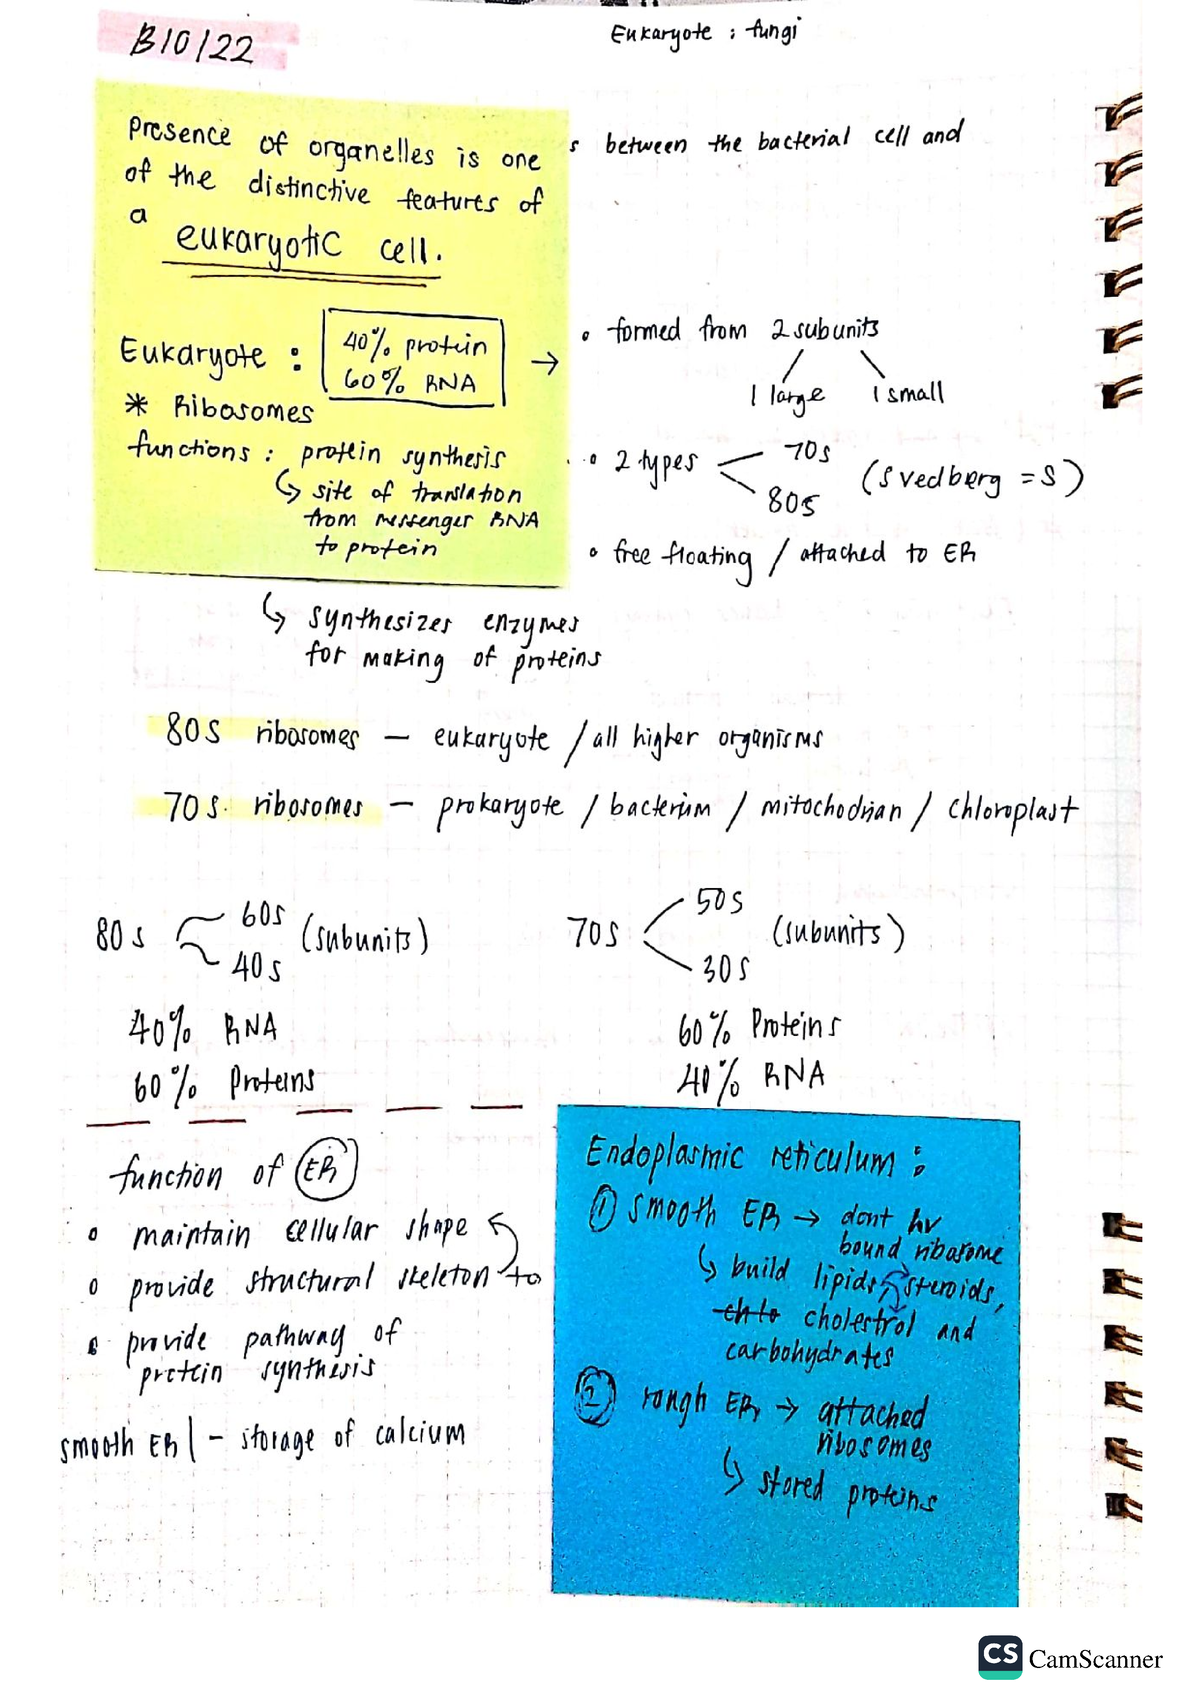 B10/22
Eukaryote : fungi
Presence of organelles is one
of the distinctive features of
a eukaryotic cell.
s between the bacterial cell and
Eukaryote :
40% protein
60% RNA
→
* Ribosomes
functions : protein synthesis
↳ site of translation
from messenger RNA
to protein
• formed from 2 subunits
1 large
1 small
• 2 types
70s
80s
(Svedberg = S)
• free floating / attached to ER
↳ synthesizes enzymes
for making of proteins
80S ribosomes — eukaryote / all higher organisms
70s ribosomes — prokaryote / bacterium / mitochodrian / chloroplast
80s
60s
40s
(subunits)
40% RNA
60% Proteins
70s
50s
30s
(subunits)
60% Proteins
40% RNA
function of ER
• maintain cellular shape
• provide structural skeleton to
• provide pathway of
protein synthesis
smooth ER | - storage of calcium
Endoplasmic reticulum :
① smooth ER → dont hv
bound ribosome
↳ build lipids, steroids,
cholestrol and
carbohydrates
② rough ER → attached
ribosomes
↳ stored proteins
CS CamScanner